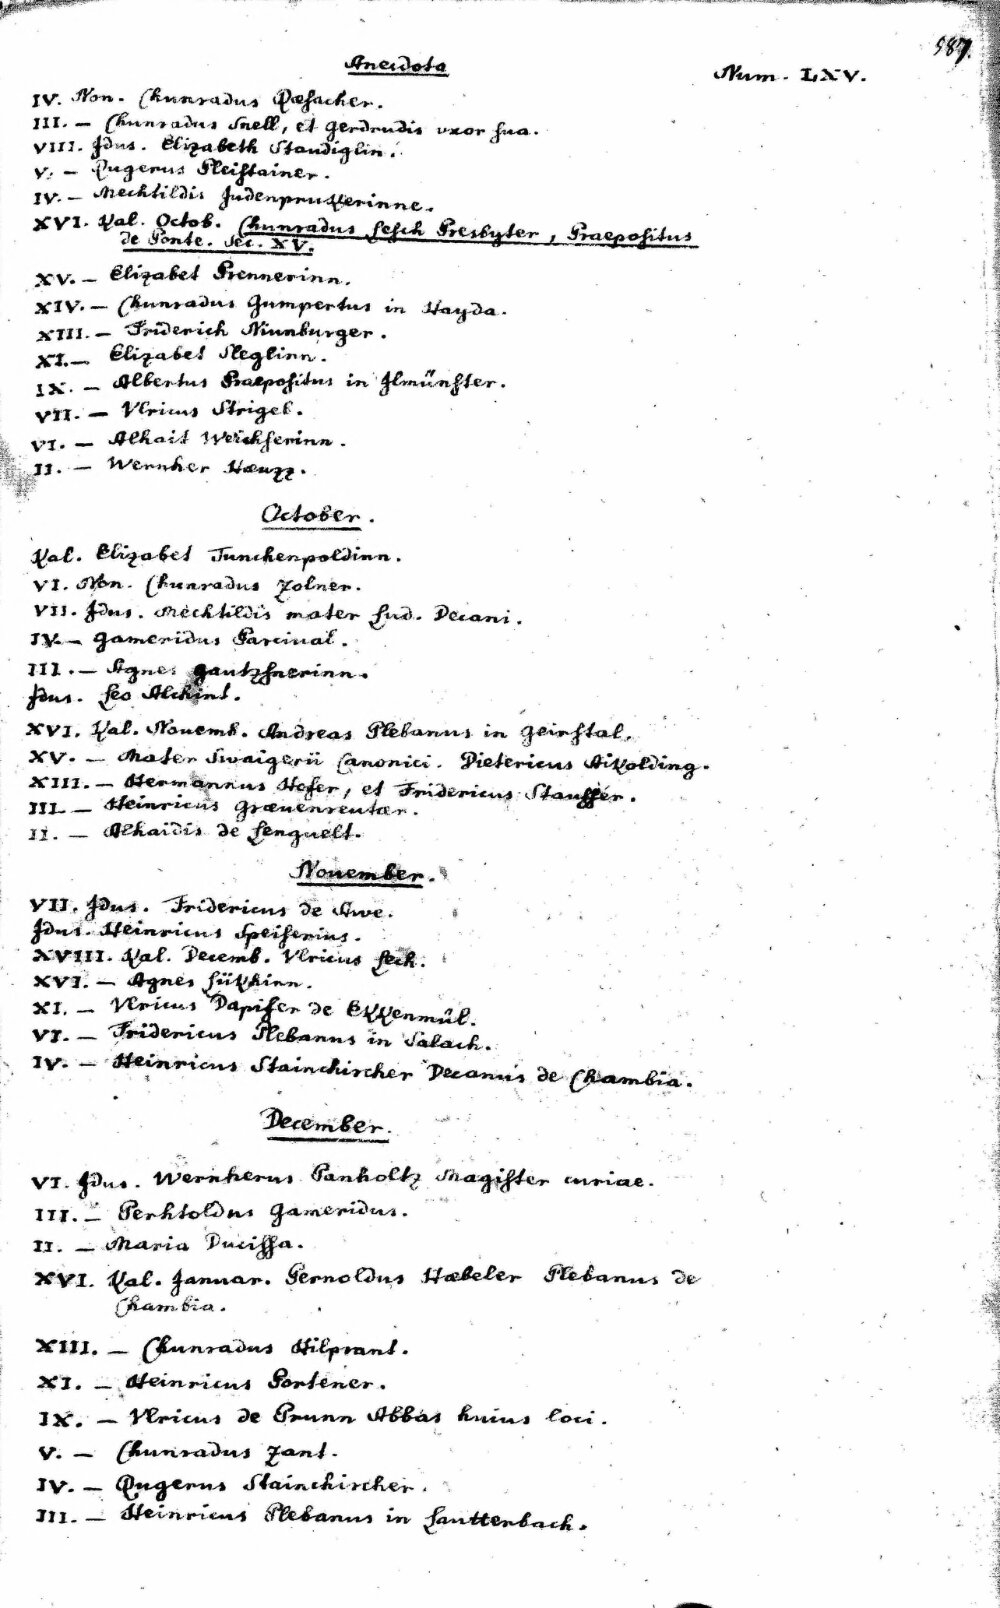 587.
Anecdota
Num. LXV.
IV. Non. Chunradus Pæsacher.
III. — Chunradus Snell, et Gerdrudis uxor sua.
VIII. Jdus. Elizabeth Staudiglin.
V. — Rugerus Pleistainer.
IV. — Mechtildis Judenprukkerinne.
XVI. Kal. Octob. Chunradus Lesch Presbyter, Praepositus
de Ponte. Sec. XV.
XV. — Elizabet Prennerinn.
XIV. — Chunradus Gumpertus in Hayda.
XIII. — Friderich Niunburger.
XI. — Elizabet Sleglinn.
IX. — Albertus Praepositus in Jlmünster.
VII. — Vlricus Strigel.
VI. — Alhait Weichserinn.
II. — Wernher Hæuzz.
October.
Kal. Elizabet Tunchenpoldinn.
VI. Non. Chunradus Zolner.
VII. Jdus. Mechtildis mater Lud. Decani.
IV. — Gameridus Parcival.
III. — Agnes Gautzsnerinn.
Jdus. Leo Alchint.
XVI. Kal. Nouemb. Andreas Plebanus in Geinstal.
XV. — Mater Swaigerii Canonici. Dietericus Aikolding.
XIII. — Hermannus Hofer, et Fridericus Stauffer.
III. — Heinricus Græuenreutær.
II. — Alhaidis de Lenguelt.
Nouember.
VII. Jdus. Fridericus de Awe.
Jdus. Heinricus Speiserius.
XVIII. Kal. Decemb. Vlricus Lech.
XVI. — Agnes Sükkinn.
XI. — Vlricus Dapifer de Ekkenmül.
VI. — Fridericus Plebanus in Salach.
IV. — Heinricus Stainchircher Decanus de Chambia.
December.
VI. Jdus. Wernherus Panholtz Magister curiae.
III. — Perhtoldus Gameridus.
II. — Maria Ducissa.
XVI. Kal. Januar. Pernoldus Hæbeler Plebanus de
Chambia.
XIII. — Chunradus Hilprant.
XI. — Heinricus Portener.
IX. — Vlricus de Prunn Abbas huius loci.
V. — Chunradus Zant.
IV. — Rugerus Stainchircher.
III. — Heinricus Plebanus in Lautterbach.